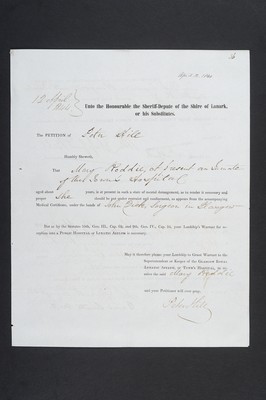 April 12, 1844
12 April
1844
Unto the Honourable the Sheriff-Depute of the Shire of Lanark,
or his Substitutes.
The PETITION of Peter Hill
Humbly Sheweth,
That Mary Keddie, at present an Inmate
of the Town's Hospital
aged about years, is at present in such a state of mental derangement, as to render it necessary and
proper She should be put under restraint and confinement, as appears from the accompanying
Medical Certificate, under the hands of Surgeon in Glasgow
That as by the Statutes 55th, Geo. III., Cap. 69, and 9th, Geo. IV., Cap. 34, your Lordship's Warrant for re-
ception into a PUBLIC HOSPITAL or LUNATIC ASYLUM is necessary.
May it therefore please your Lordship to Grant Warrant to the
Superintendent or Keeper of the GLASGOW ROYAL
LUNATIC ASYLUM, or TOWNS HOSPITAL, to re-
ceive the said Mary Keddie
and your Petitioner will ever pray.
Peter Hill